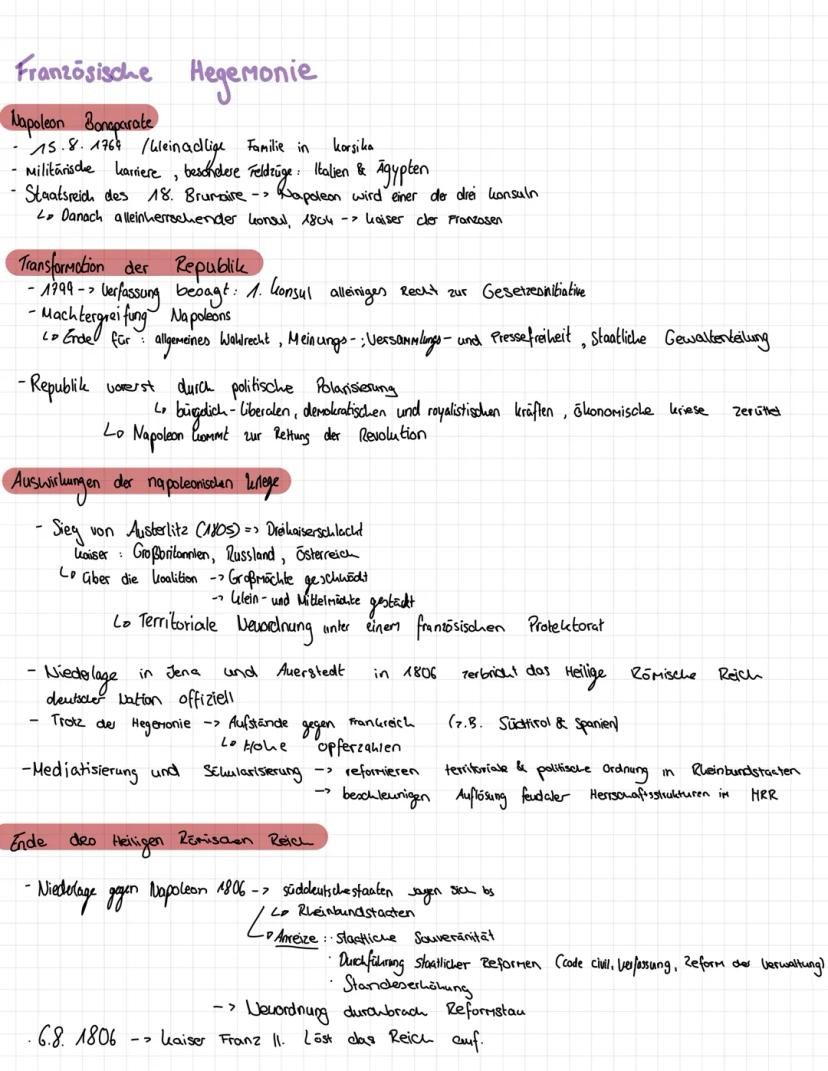 Französische Hegemonie
Napoleon Bonaparate
- 15.8.1769 /kleinadlige Familie in Korsika
- Militärische karriere, besondere Feldzüge: Italien & Ägypten
- Staatsreich des 18. Brumaire -> Napoleon wird einer der drei konsuln
↳ Danach alleinherrschender konsul, 1804 -> kaiser der Franzosen
Transformation der Republik
- 1799 -> Verfassung besagt: 1. Konsul alleiniges Recht zur Gesetzesinitiative
- Machtergreifung Napoleons
↳ Ende für: allgemeines Wahlrecht, Meinungs-, Versammlungs- und Pressefreiheit, Staatliche Gewaltenteilung
- Republik vorerst durch politische Polarisierung
↳ bürgelich-liberalen, demokratischen und royalistischen kräften, ökonomische kriese zerüttet
↳ Napoleon kommt zur Rettung der Revolution
Auswirkungen der napoleonischen Kriege
- Sieg von Austerlitz (1805) => Dreikaiserschlacht
kaiser: Großbritannien, Russland, Österreich
↳ über die koalition -> Großmächte geschwächt
-> klein- und Mittelmächte gestärkt
↳ Territoriale Neuordnung unter einem französischen Protektorat
- Niederlage in Jena und Auerstedt in 1806 zerbricht das Heilige Römische Reich
deutscher Nation offiziell
- Trotz der Hegemonie -> Aufstände gegen Frankreich (z.B. Südtirol & Spanien)
↳ Hohe opferzahlen
- Mediatisierung und Säkularisierung -> reformieren territoriale & politische Ordnung in Rheinbundstaaten
-> beschleunigen Auflösung feudaler Herrschaftsstrukturen im HRR
Ende des Heiligen Römischen Reich
- Niederlage gegen Napoleon 1806 -> süddeutsche staaten sagen sich los
↳ Rheinbundstaaten
↳ Anreize: · staatliche Souveränität
· Durchführung staatlicher Reformen (code civil, Verfassung, Reform der Verwaltung)
· Standeserhöhung
-> Neuordnung durchbrach Reformstau
· 6.8. 1806 -> kaiser Franz II. Löst das Reich auf.